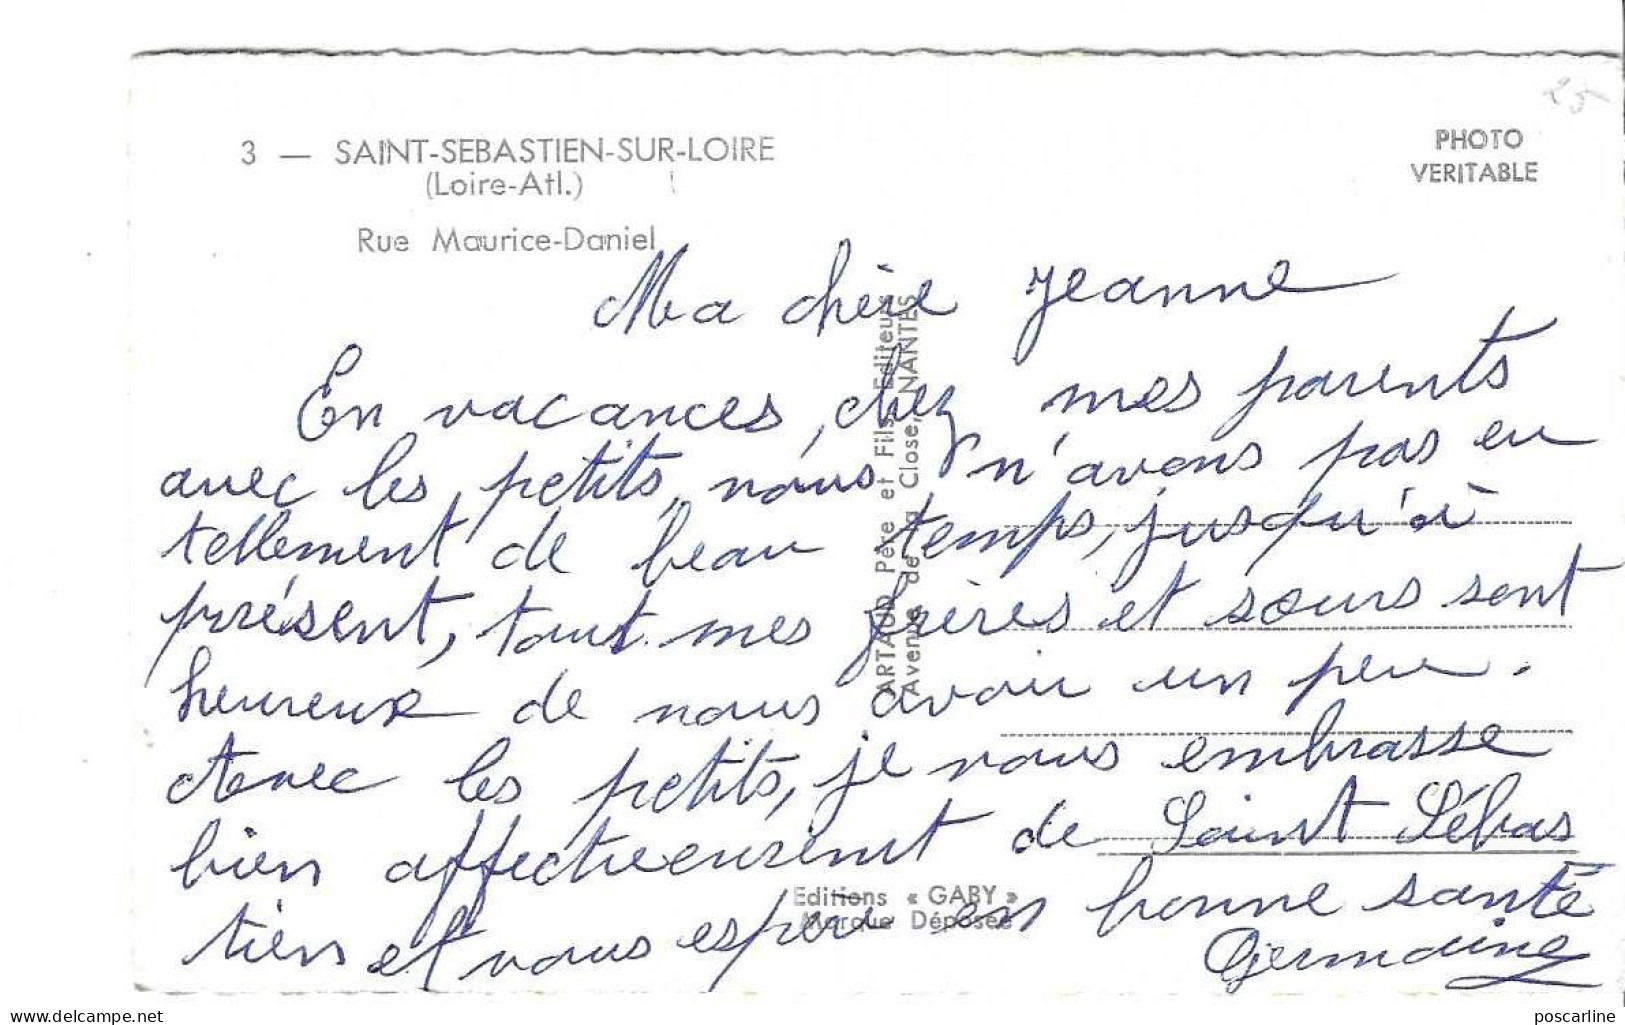 25
3 — SAINT-SEBASTIEN-SUR-LOIRE
(Loire-Atl.)
Rue Maurice-Daniel
PHOTO
VERITABLE
Ma chère Jeanne
En vacances, chez mes parents
avec les petits, nous n'avons pas eu
tellement de beau temps, jusqu'à
présent, tout mes frères et sœurs sont
heureux de nous avoir un peu.
Avec les petits, je vous embrasse
bien affectueusement de Saint Sébas
tien et vous espère en bonne santé
Germaine
ARTAUD Père et Fils, Editeurs
Avenue de la Close, NANTES
Editions « GABY »
Marque Déposée
delcampe.net
poscarline